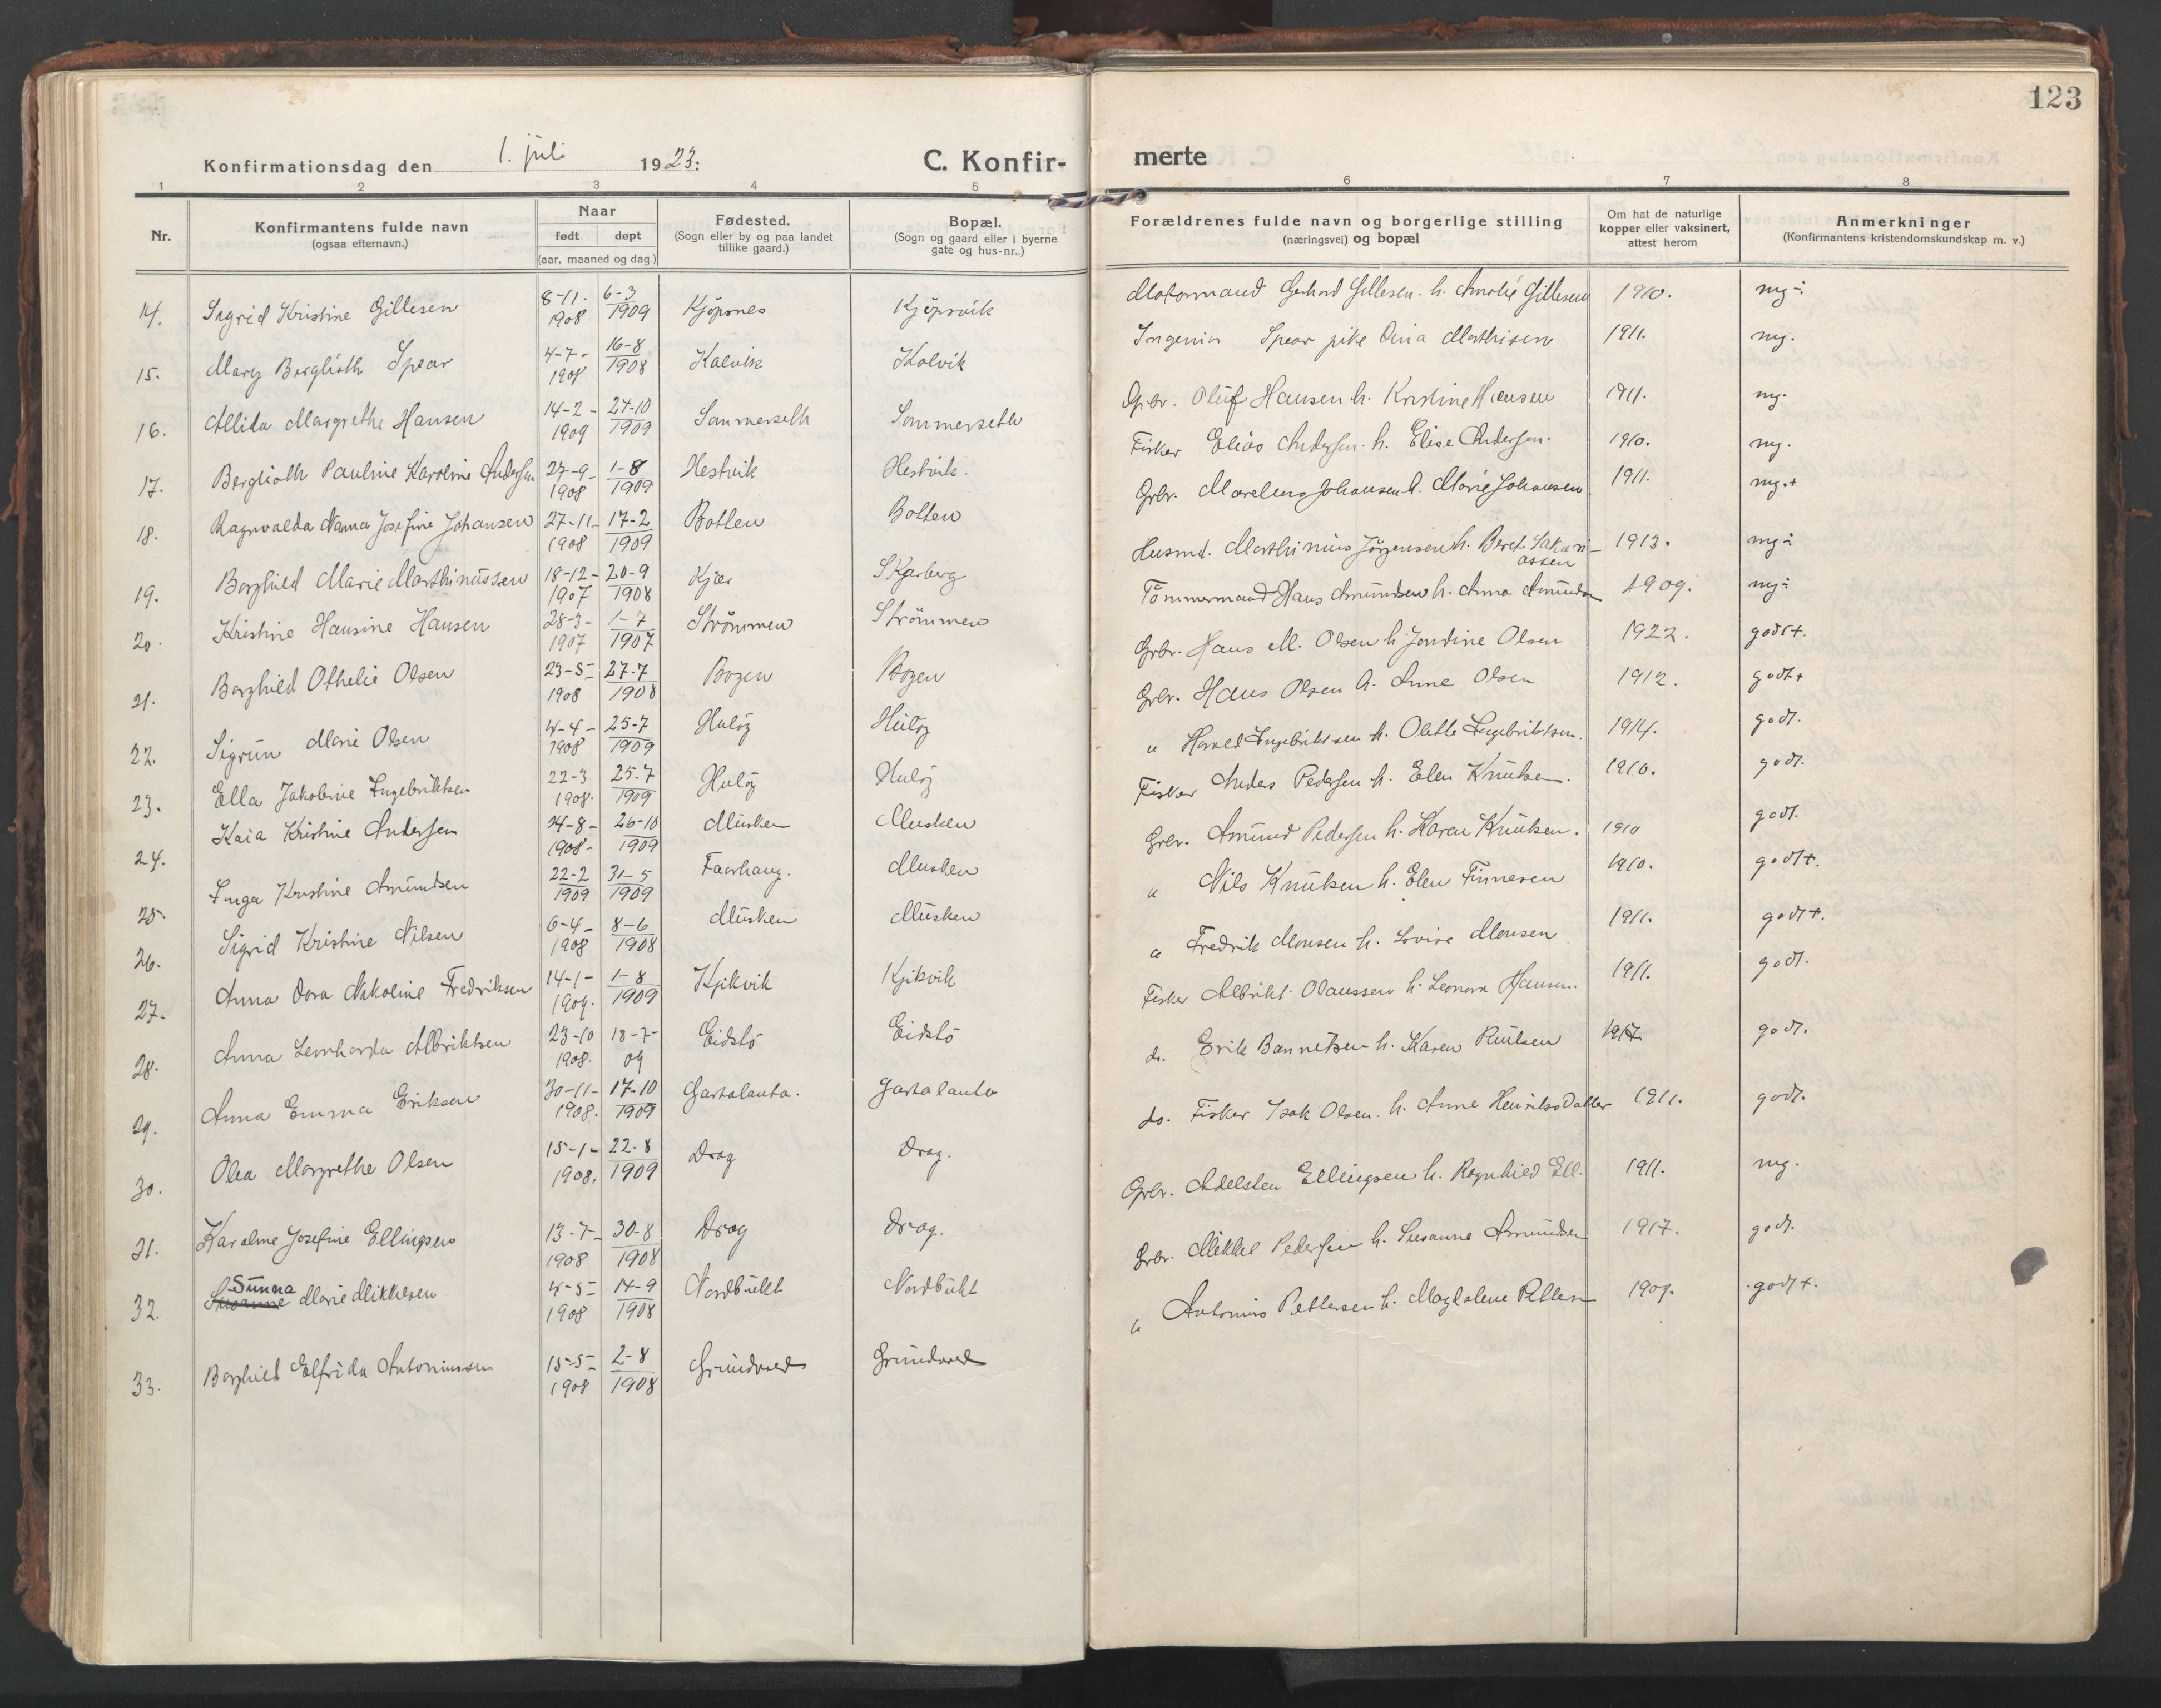 123
Konfirmationsdag den 1. juli 1923.
C. Konfir-merte
1 2 3 4 5 6 7 8
Nr.
Konfirmantens fulde navn
(ogsaa efternavn.)
Naar
født døpt
(aar, maaned og dag.)
Fødested.
(Sogn eller by og paa landet
tillike gaard.)
Bopæl.
(Sogn og gaard eller i byerne
gate og hus-nr..)
Forældrenes fulde navn og borgerlige stilling
(næringsvei) og bopæl
Om hat de naturlige
kopper eller vaksinert,
attest herom
Anmerkninger
(Konfirmantens kristendomskundskap m. v.)
14. Sigrid Kristine Gillesen 8-11-1908 6-3 1909 Kjøpsnes Kjøpsvik Motormand Gerhard Gillesen h. Amalie Gillesen 1910. mg÷
15. Mary Berglioth Spear 4-7-1908 16-8 1908 Kalvik Kalvik Ingeniør Spear pike Mathisen 1911. mg.
16. Allida Margrethe Hansen 14-2-1909 24-10 1909 Sommerseth Sommerseth Gbr. Oluf Hansen h. Kristine Hansen 1911. mg.
17. Berglioth Pauline Karoline Andersen 27-9-1908 1-8 1909 Hestvik Hestvik. Fisker Elias Andersen h. Elise Andersen. 1910. mg.
18. Ragnvalda Nanna Josefine Johansen 27-11-1908 17-2 1909 Botten Botten Grbr. Marelius Johansen h. Marie Johansen 1911. mg.+
19. Borghild Marie Marthinussen 18-12-1907 20-9 1908 Kjær Skarberg Husmd. Marthinus Jørgensen h. Beret Sakariassen 1913. mg÷
20. Kristine Hansine Hansen 28-3-1907 1-7 1907 Strømmen Strømmen Tømmermand Hans Amundsen h. Anna Amunds 1909. mg÷
21. Borghild Othelie Olsen 23-5-1908 27-7 1908 Bogen Bogen Grbr. Hans M. Olsen h. Jondine Olsen 1922. godt+.
22. Sigrun Marie Olsen 4-4-1908 25-7 1909 Huløy Huløy Grbr. Hans Olsen h. Anne Olsen 1912. godt+
23. Ella Jakobine Ingebriktsen 22-3 1908. 25-7 1909 Huløy Huløy " Harald Ingebriktsen h. Olette Ingebriktsen. 1914. godt.
24. Kaia Kristine Andersen 24-8-1908- 26-10 1909 Musken Musken Fisker Anders Pedersen h. Elen Knutsen. 1910. godt.
25. Inga Kristine Amundsen 22-2 1909 31-5 1909 Musken Grbr. Amund Pedersen h. Karen Knutsen. 1910 godt.
26. Sigrid Kristine Nilsen 6-4-1908 8-6 1908 Musken Musken " Nils Knutsen h. Elen Finnesen 1910. godt+.
27. Anna Dora Nikoline Fredriksen 14-1-1909. 1-8 1909 Kjikvik Kjikvik " Fredrik Monsen h. Lovise Monsen 1911. godt+.
28. Anna Leonharda Albriktsen 23-10 1908. 18-7-09 Eidstø Eidstø Fisker Albrikt Olaussen h. Leonora Hansen. 1911. godt.
29. Anna Emma Eriksen 30-11-1908. 17-10 1909 Gastalanta. Gastalanta do. Erik h. Karen Paulsen 1917. godt.
30. Olea Margrethe Olsen 15-1-1908. 22-8 1909 Drag Drag. do. Fisker Isak Olsen. h. Anne Henriksdatter 1911. godt.
31. Karoline Josefine Ellingsen 13-7-1908 30-8 1908 Drag Drag. Grbr. Adelsten Ellingsen h. Ragnhild Ell. 1911. mg.
32. Sunna Marie Mikkelsen 4-5-1908 14-9 1908 Nordbukt Nordbukt Grbr. Mikkel Pedersen h. Susanne Amundsen 1917. godt.
33. Borghild Elfrida Antoniussen 15-5-1908 2-8 1908 Grundvad Grundvad " Antonius Pettersen h. Magdalene Pettersen 1909. godt+.